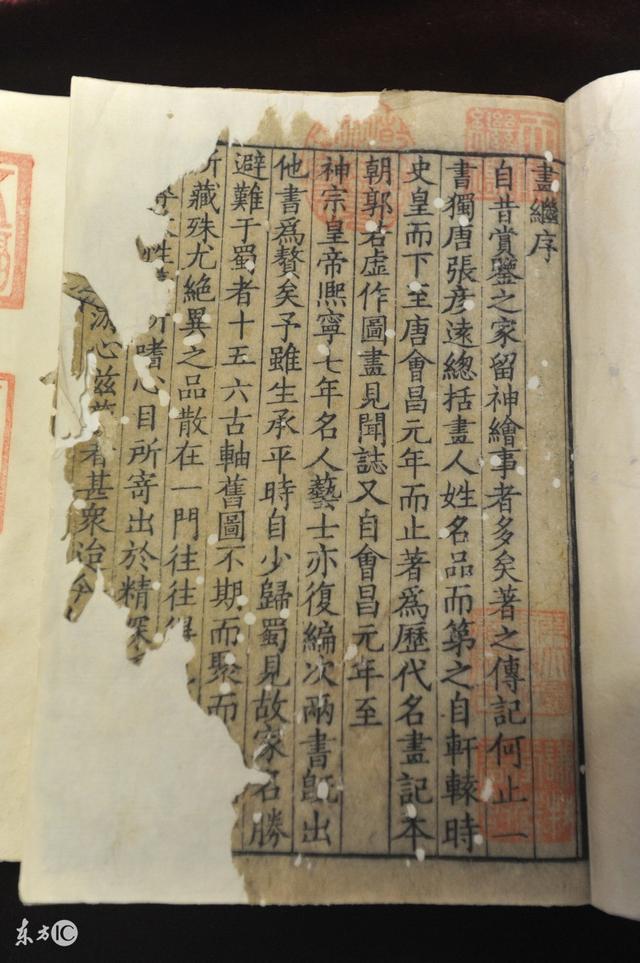 畫繼序
自昔賞鑒之家留神繪事者多矣著之傳記何止一
書獨唐張彥遠總括畫人姓名品而第之自軒轅時
史皇而下至唐會昌元年而止著爲歷代名畫記本
朝郭若虛作圖畫見聞誌又自會昌元年至
神宗皇帝熈寧七年名人藝士亦復編次兩書旣出
他書爲贅矣予雖生承平時自少歸蜀見故家名勝
避難于蜀者十五六古軸舊圖不期而聚而
所藏殊尤絶異之品散在一門往往得
性 所嗜心目所寄出於精深
游心兹 者甚衆迨今
东方IC